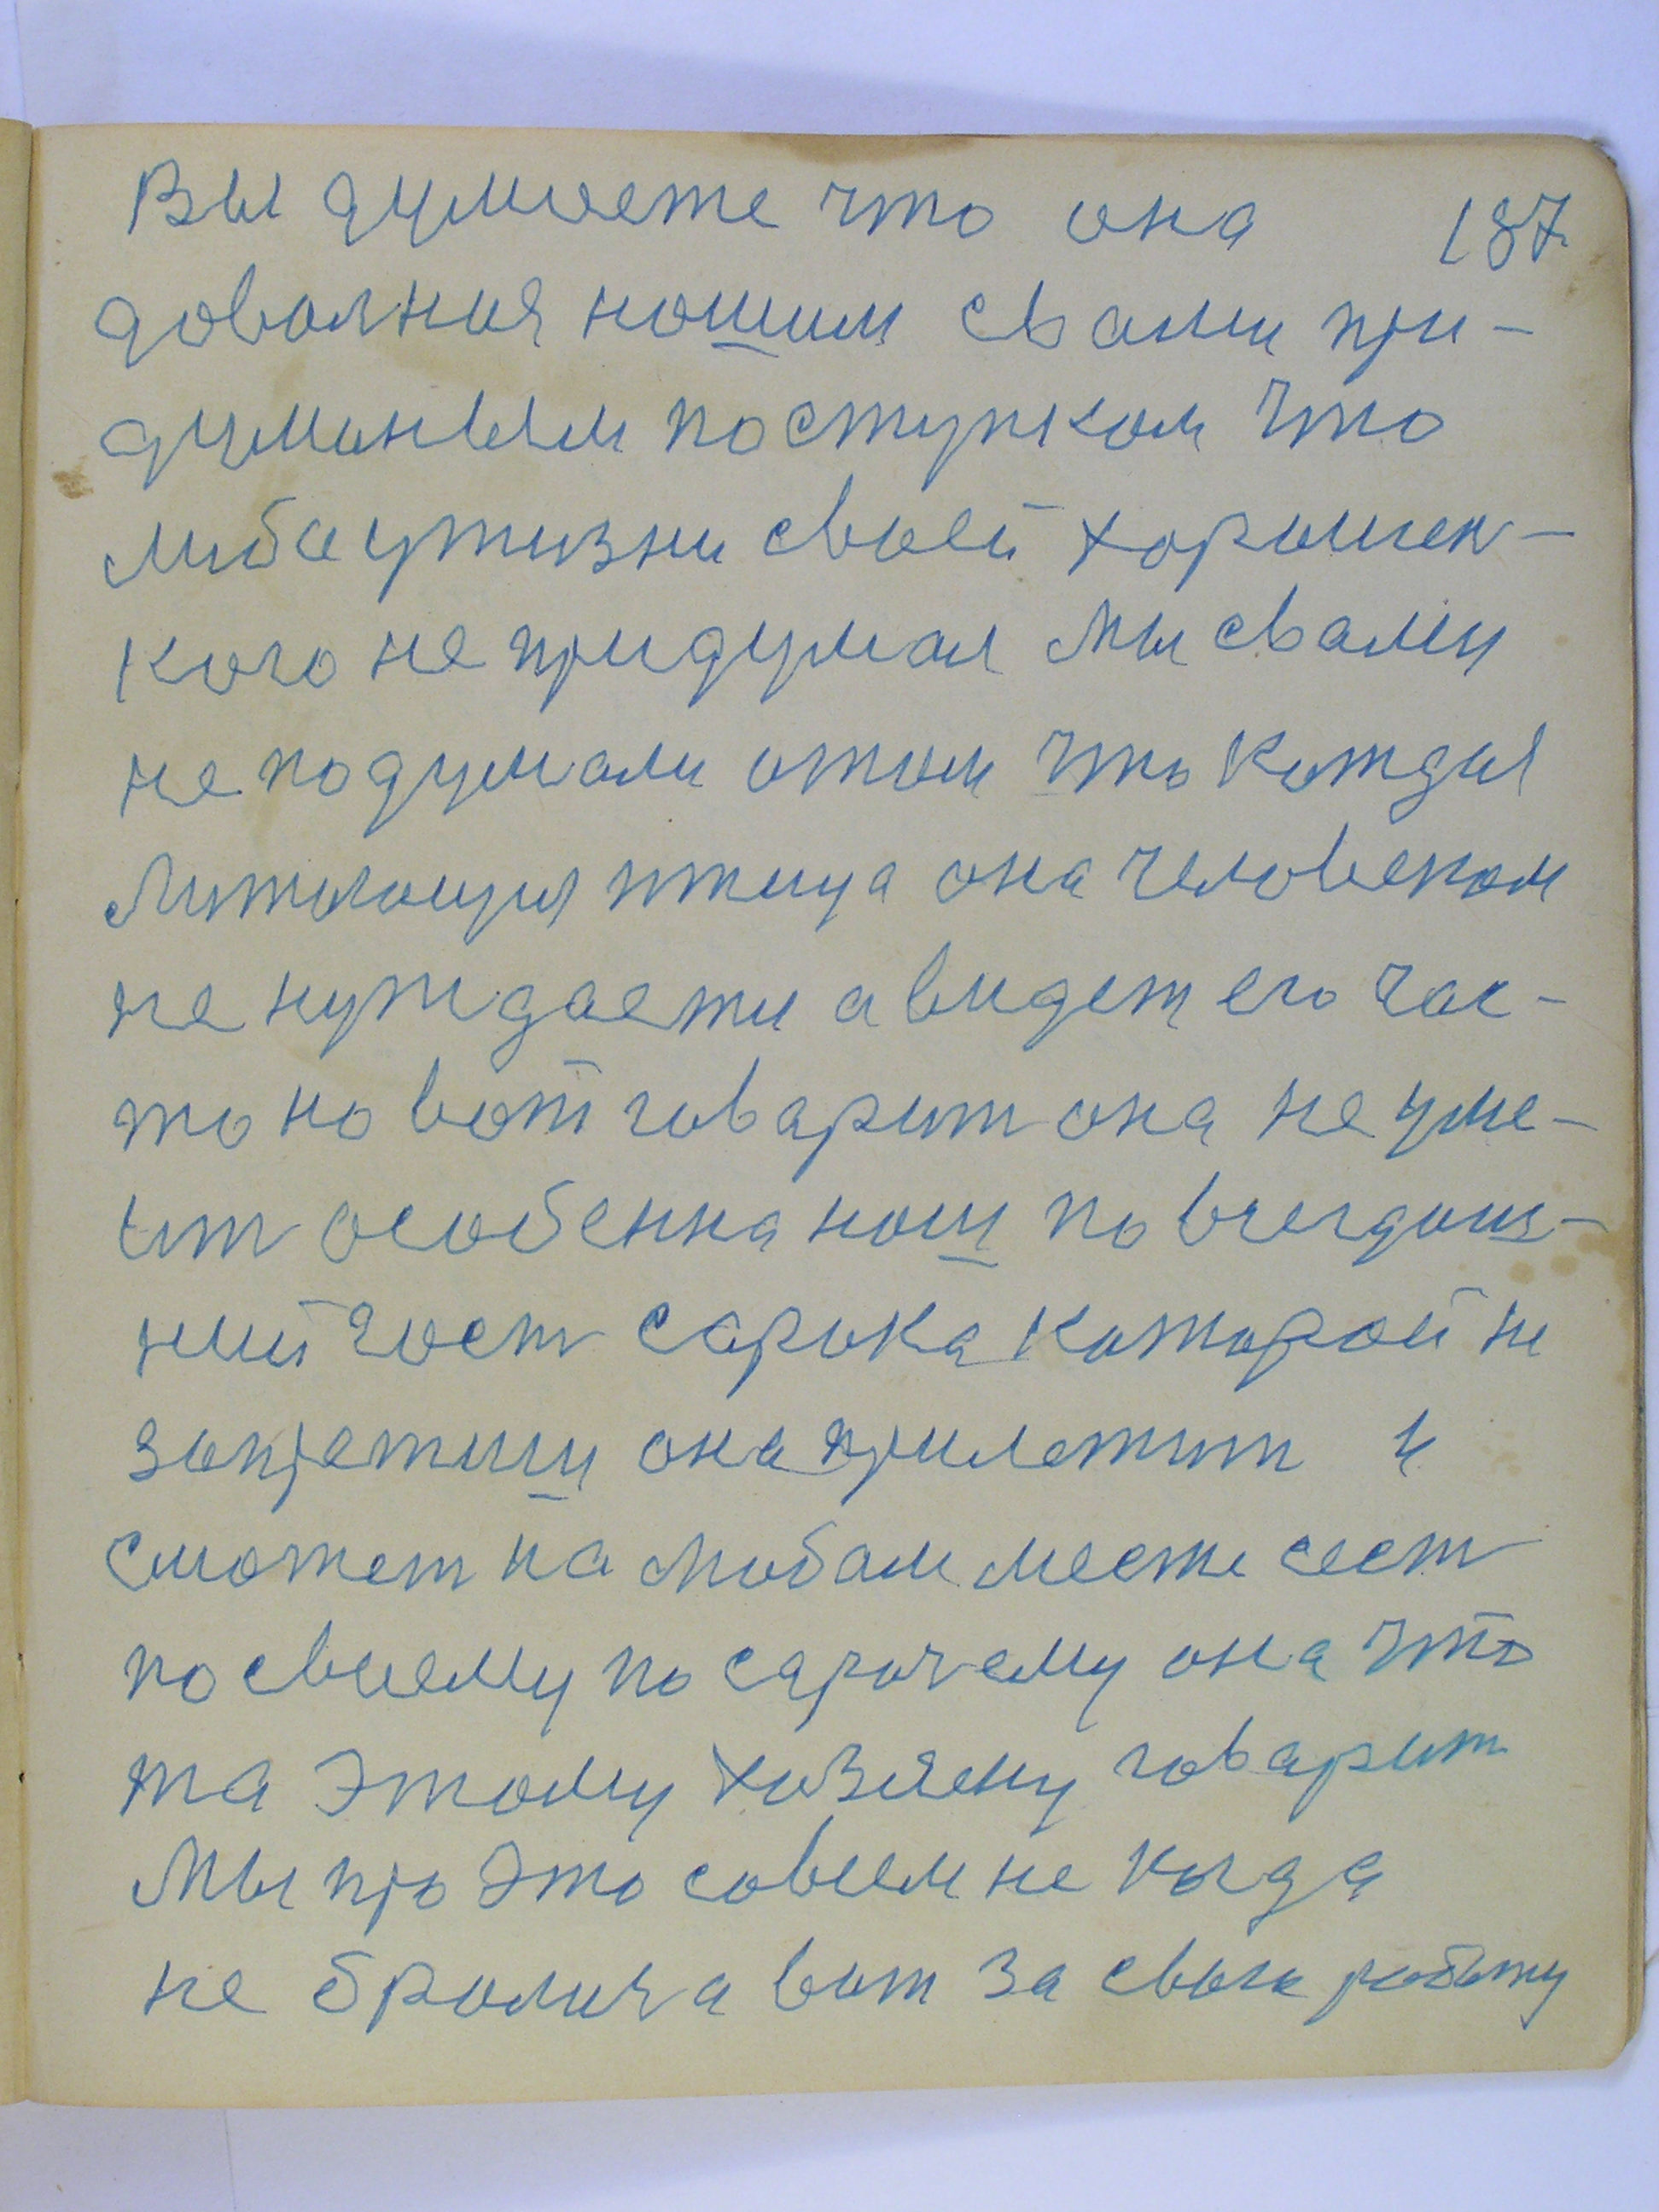 Вы думоете что она 187.
доволная нашим свами при-
думоным поступком что
либа ужизни своей хорошен-
кого не придумал Мы свами
не подумали отом что каждая
Литающия птица она человеком
не нуждаети а видет его час-
то но вот говарит она не уме-
ит особенна наш по вседниш-
ний гост сарока каторой не
запретиш она прилетит и
сможет на Любам месте сест
по своему по сарочему она что
та этому хозяену говарит
Мы про это совсем не когда
не бролис а вот за свою работу